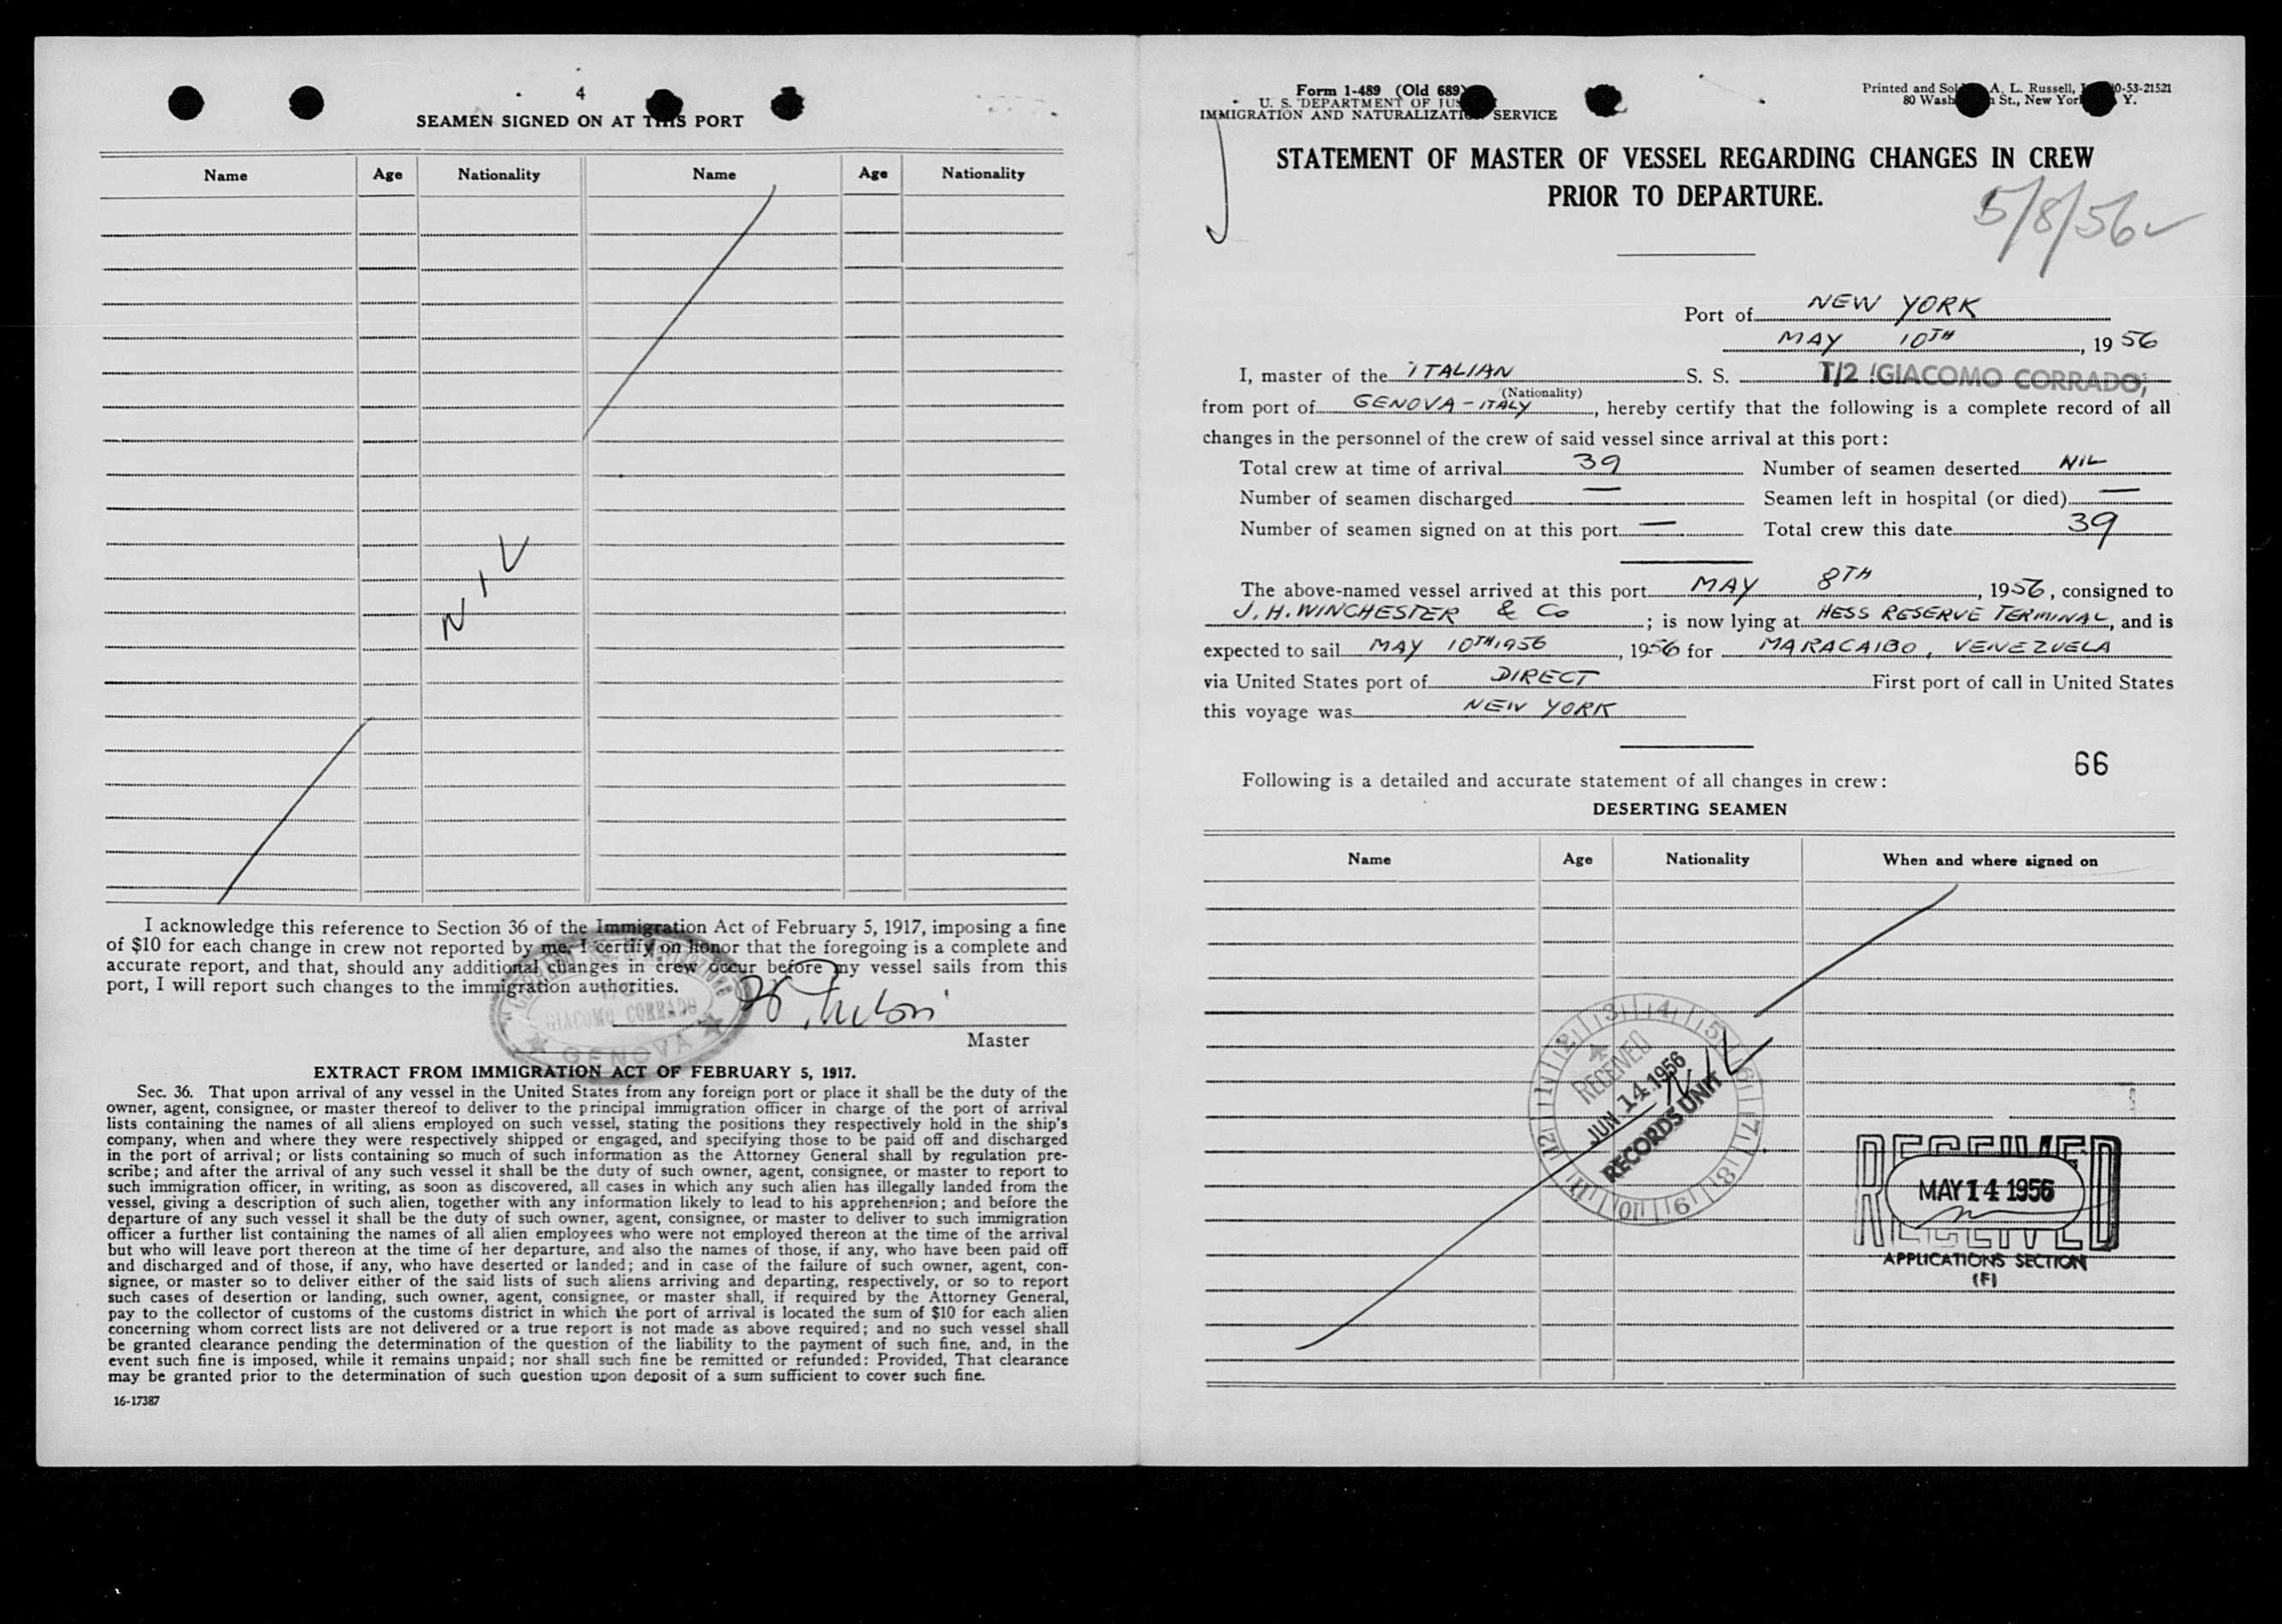 4
SEAMEN SIGNED ON AT THIS PORT
Name Age Nationality Name Age Nationality
NIL
I acknowledge this reference to Section 36 of the Immigration Act of February 5, 1917, imposing a fine
of $10 for each change in crew not reported by me. I certify on honor that the foregoing is a complete and
accurate report, and that, should any additional changes in crew occur before my vessel sails from this
port, I will report such changes to the immigration authorities.
GIACOMO CORRADO
GENOVA
Master
EXTRACT FROM IMMIGRATION ACT OF FEBRUARY 5, 1917.
Sec. 36. That upon arrival of any vessel in the United States from any foreign port or place it shall be the duty of the
owner, agent, consignee, or master thereof to deliver to the principal immigration officer in charge of the port of arrival
lists containing the names of all aliens employed on such vessel, stating the positions they respectively hold in the ship's
company, when and where they were respectively shipped or engaged, and specifying those to be paid off and discharged
in the port of arrival; or lists containing so much of such information as the Attorney General shall by regulation pre-
scribe; and after the arrival of any such vessel it shall be the duty of such owner, agent, consignee, or master to report to
such immigration officer, in writing, as soon as discovered, all cases in which any such alien has illegally landed from the
vessel, giving a description of such alien, together with any information likely to lead to his apprehension; and before the
departure of any such vessel it shall be the duty of such owner, agent, consignee, or master to deliver to such immigration
officer a further list containing the names of all alien employees who were not employed thereon at the time of the arrival
but who will leave port thereon at the time of her departure, and also the names of those, if any, who have been paid off
and discharged and of those, if any, who have deserted or landed; and in case of the failure of such owner, agent, con-
signee, or master so to deliver either of the said lists of such aliens arriving and departing, respectively, or so to report
such cases of desertion or landing, such owner, agent, consignee, or master shall, if required by the Attorney General,
pay to the collector of customs of the customs district in which the port of arrival is located the sum of $10 for each alien
concerning whom correct lists are not delivered or a true report is not made as above required; and no such vessel shall
be granted clearance pending the determination of the question of the liability to the payment of such fine, and, in the
event such fine is imposed, while it remains unpaid; nor shall such fine be remitted or refunded: Provided, That clearance
may be granted prior to the determination of such question upon deposit of a sum sufficient to cover such fine.
16-17387
Form 1-489 (Old 689)
U. S. DEPARTMENT OF JUS
IMMIGRATION AND NATURALIZATION SERVICE
Printed and Sol A. L. Russell, 0-53-21521
80 Wash n St., New York Y.
STATEMENT OF MASTER OF VESSEL REGARDING CHANGES IN CREW
PRIOR TO DEPARTURE.
5/8/56
Port of NEW YORK
MAY 10TH, 1956
I, master of the ITALIAN S. S. T/2 "GIACOMO CORRADO"
(Nationality)
from port of GENOVA - ITALY, hereby certify that the following is a complete record of all
changes in the personnel of the crew of said vessel since arrival at this port:
Total crew at time of arrival 39 Number of seamen deserted NIL
Number of seamen discharged — Seamen left in hospital (or died) —
Number of seamen signed on at this port — Total crew this date 39
The above-named vessel arrived at this port MAY 8TH, 1956, consigned to
J. H. WINCHESTER & Co; is now lying at HESS RESERVE TERMINAL, and is
expected to sail MAY 10TH 1956, 1956 for MARACAIBO, VENEZUELA
via United States port of DIRECT First port of call in United States
this voyage was NEW YORK
66
Following is a detailed and accurate statement of all changes in crew:
DESERTING SEAMEN
Name Age Nationality When and where signed on
NIL
1 2 3 4 5 6 7 8 9 10 11 12
RECEIVED
JUN 14 1956
RECORDS UNIT
RECEIVED
MAY 14 1956
RECEIVED
APPLICATIONS SECTION
(F)